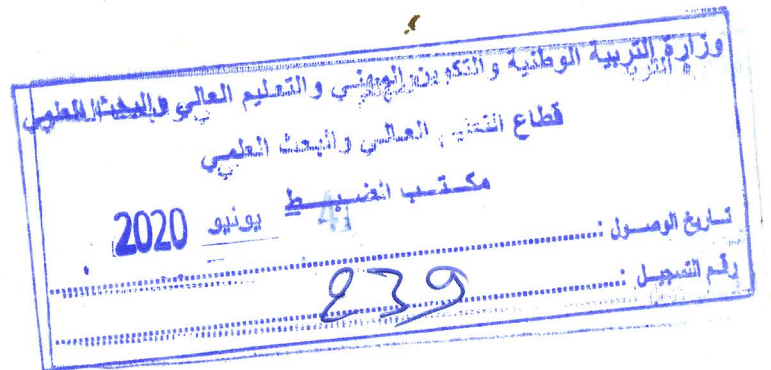 وزارة التربية الوطنية والتكوين المهني والتعليم العالي والبحث العلمي
قطاع التعليم العالي والبحث العلمي
مكتب الضبط
يونيو 2020
تاريخ الوصول :
رقم التسجيل : 239